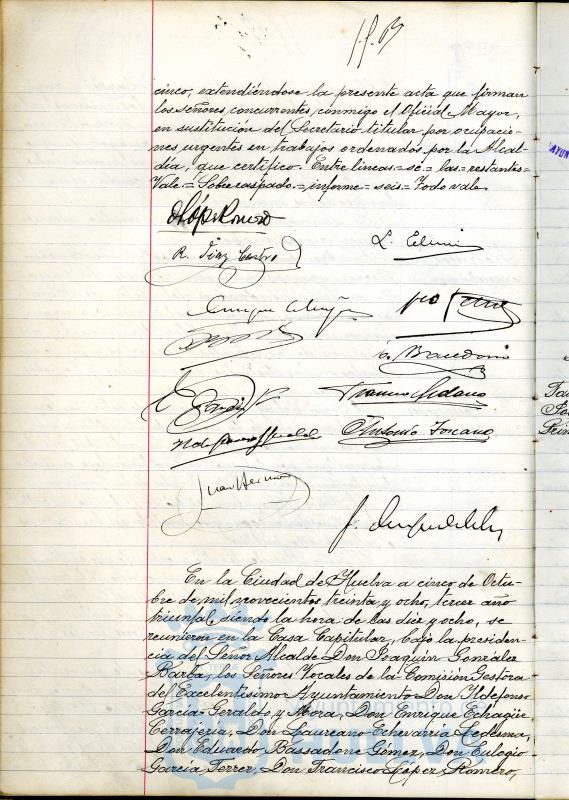 cinco, extendiéndose la presente acta que firman
los señores concurrentes, conmigo el Oficial Mayor,
en sustitución del Secretario titular por ocupacio-
nes urgentes en trabajos ordenados por la Alcal-
día, que certifico. Entre lineas = se = las = restantes =
Vale. = Sobre raspado. = informe = seis = Todo vale.
López Romero
R. Díaz Castro
Enrique
Antonio Toscano
Juan
En la Ciudad de Huelva a cinco de Octu-
bre de mil novecientos treinta y ocho, tercer año
triunfal, siendo la hora de las diez y ocho, se
reunieron en la Casa Capitular, bajo la presiden-
cia del Señor Alcalde Don Joaquín Gonzalez
Barba, los Señores Vocales de la Comisión Gestora
del Excelentísimo Ayuntamiento Don Ildefonso
García-Geraldo y Mora, Don Enrique Echagüe
Cerrajeria, Don Laureano Echevarria Ledesma,
Don Eduardo Bassadone Gómez, Don Eulogio
García Ferrer, Don Francisco López Romero,